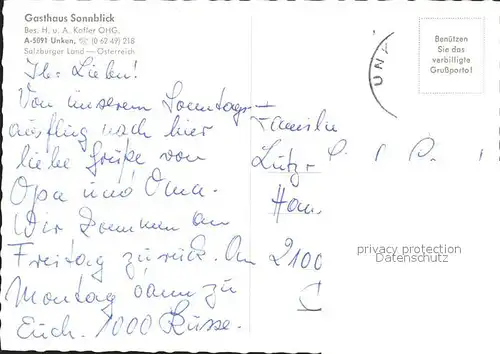 Gasthaus Sonnblick
Bes. H. u. A. Kofler OHG.
A-5091 Unken, ☏ (0 62 49) 218
Salzburger Land — Österreich
Benützen
Sie das
verbilligte
Grußporto!
UNK
Ihr Lieben!
Von unserem Sonntags-
ausflug nach hier
liebe Grüße von
Opa und Oma.
Wir kommen am
Freitag zurück. Am
Montag dann zu
Euch. 1000 Küsse.
Familie
Lutz
Ham
2100
privacy protection
Datenschutz